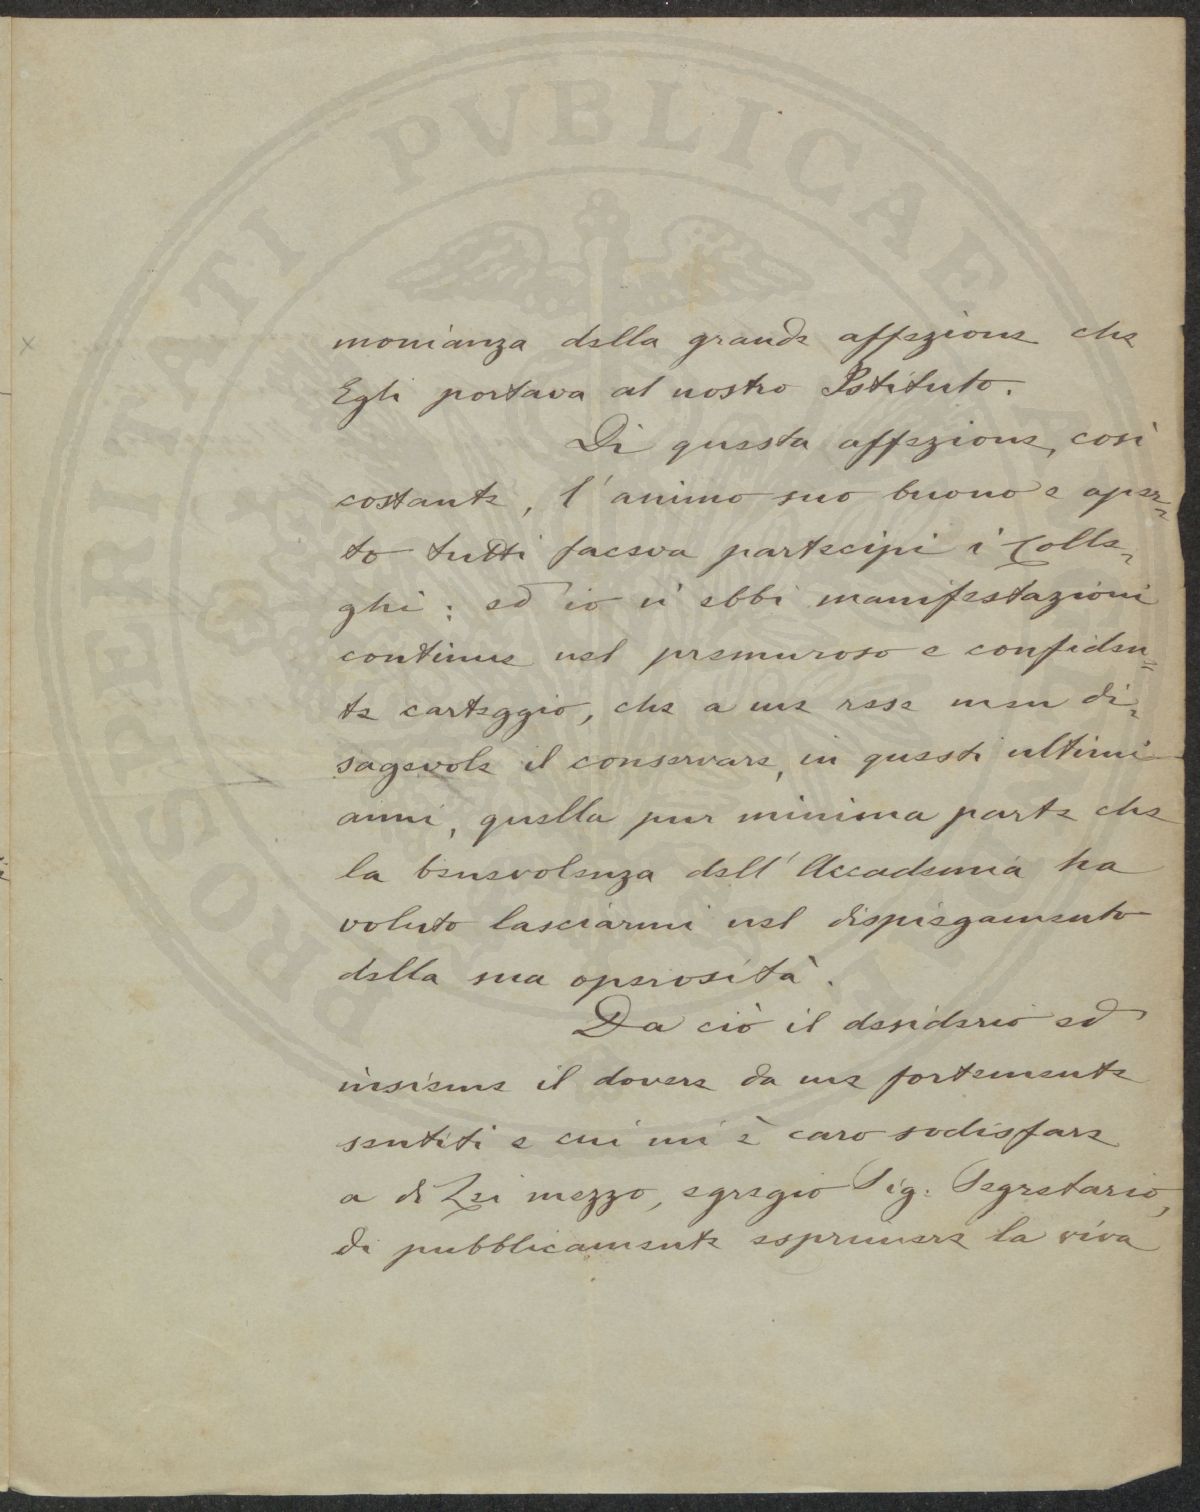 monianza della grande affezione che
Egli portava al nostro Istituto.
Di questa affezione, così
costante, l'animo suo buono e aper=
to tutti faceva partecipi i Colle=
ghi; ed io n'ebbi manifestazioni
continue nel premuroso e confiden=
te carteggio, che a me rese men di=
sagevole il conservare, in questi ultimi
anni, quella pur minima parte che
la benevolenza dell'Accademia ha
voluto lasciarmi nel dispiegamento
della sua operosità.
Da ciò il desiderio ed
insieme il dovere da me fortemente
sentiti e cui mi è caro sodisfare
a di Lei mezzo, egregio Sig. Segretario,
di pubblicamente esprimere la viva
PROSPERITATI PVBLICAE